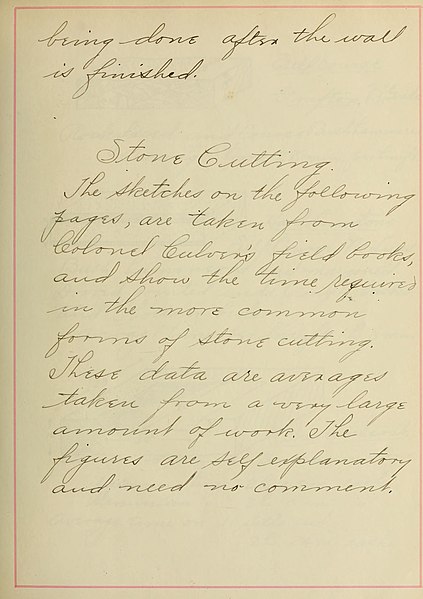 being done after the wall
is finished.
Stone Cutting.
The sketches on the following
pages, are taken from
Colonel Culver's field books,
and show the time required
in the more common
forms of stone cutting.
These data are averages
taken from a very large
amount of work. The
figures are self explanatory
and need no comment.